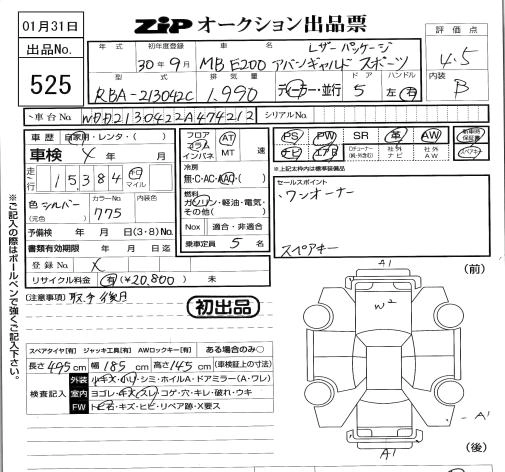 01月31日
ZIP オークション出品票
評価点
4.5
出品No.
525
年式
初年度登録
30年9月
車名
MB E200 アバンギャルド スポーツ
レザーパッケージ
内装
B
型式
RBA-213042C
排気量
1,990
ディーラー・並行
ドア
5
ハンドル
左・右
車台No.
WDD2130422A474212
シリアルNo.
車歴
自家用・レンタ・( )
フロア
コラム
インパネ
AT
MT
速
PS
PW
SR
革
AW
新車時保証書
車検
年 月
ナビ
エアB
社外ナビ
社外AW
スペアキー
※上記太枠内は標準装備品
走行
15,384
km
マイル
冷房
無・C・AC・AAC( )
セールスポイント
ワンオーナー
スペアキー
色
シルバー
(元色)
カラーNo.
775
内装色
燃料
ガソリン・軽油・電気・その他( )
予備検 年 月 日(3・8)No.
Nox
適合・非適合
書類有効期限 年 月 日迄
乗車定員
5名
登録No.
リサイクル料金 有(¥20,800) 未
(注意事項)
取手後月
初出品
※ご記入の際はボールペンで強くご記入下さい。
スペアタイヤ[有] ジャッキ工具[有] AWロックキー[有] ある場合のみ○
長さ 495cm 幅 185cm 高さ 145cm (車検証の寸法)
検査記入
外装 小キズ・小凹・シミ・ホイルA・ドアミラー(A・ワレ)
室内 ヨゴレ・キズ(スレ)コゲ・穴・キレ・破れ・ウキ
FW トビ石・キズ・ヒビ・リペア跡・X要ス
A1
(前)
W2
A1
A1
(後)